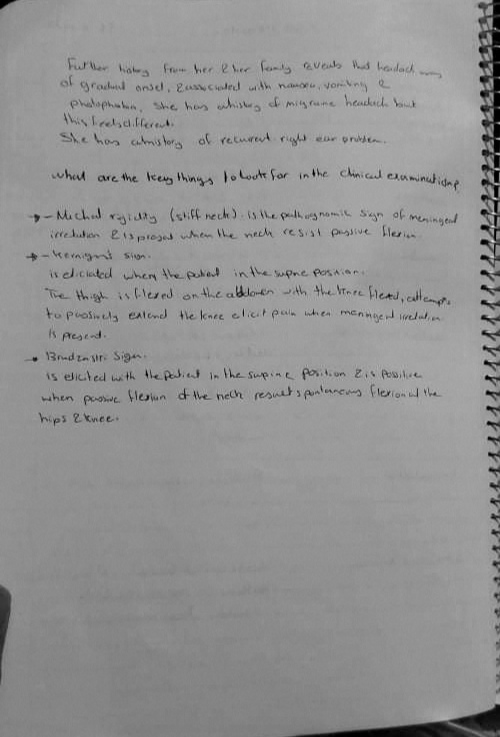 Further history from her & her family reveals that headach was
of gradual onset, & associated with nausea, vomiting &
photophobia, she has a history of migraine headach but
this feels different.
She has a history of recurrent right ear problem.
what are the key things to look for in the clinical examination?
→ - Nuchal rigidity (stiff neck). is the pathognomic sign of meningeal
irretation & is present when the neck resist passive flexion.
→ - Kernigns sign.
is eliciated when the patient in the supine position.
The thigh is flexed on the abdomen with the knee flexed, attempts
to passively extend the knee elicit pain when meningeal irretation
is present.
• Brudzinski sign.
is elicited with the patient in the supine position & is possitive
when passive flexion of the neck result spontaneous flexion of the
hips & knee.